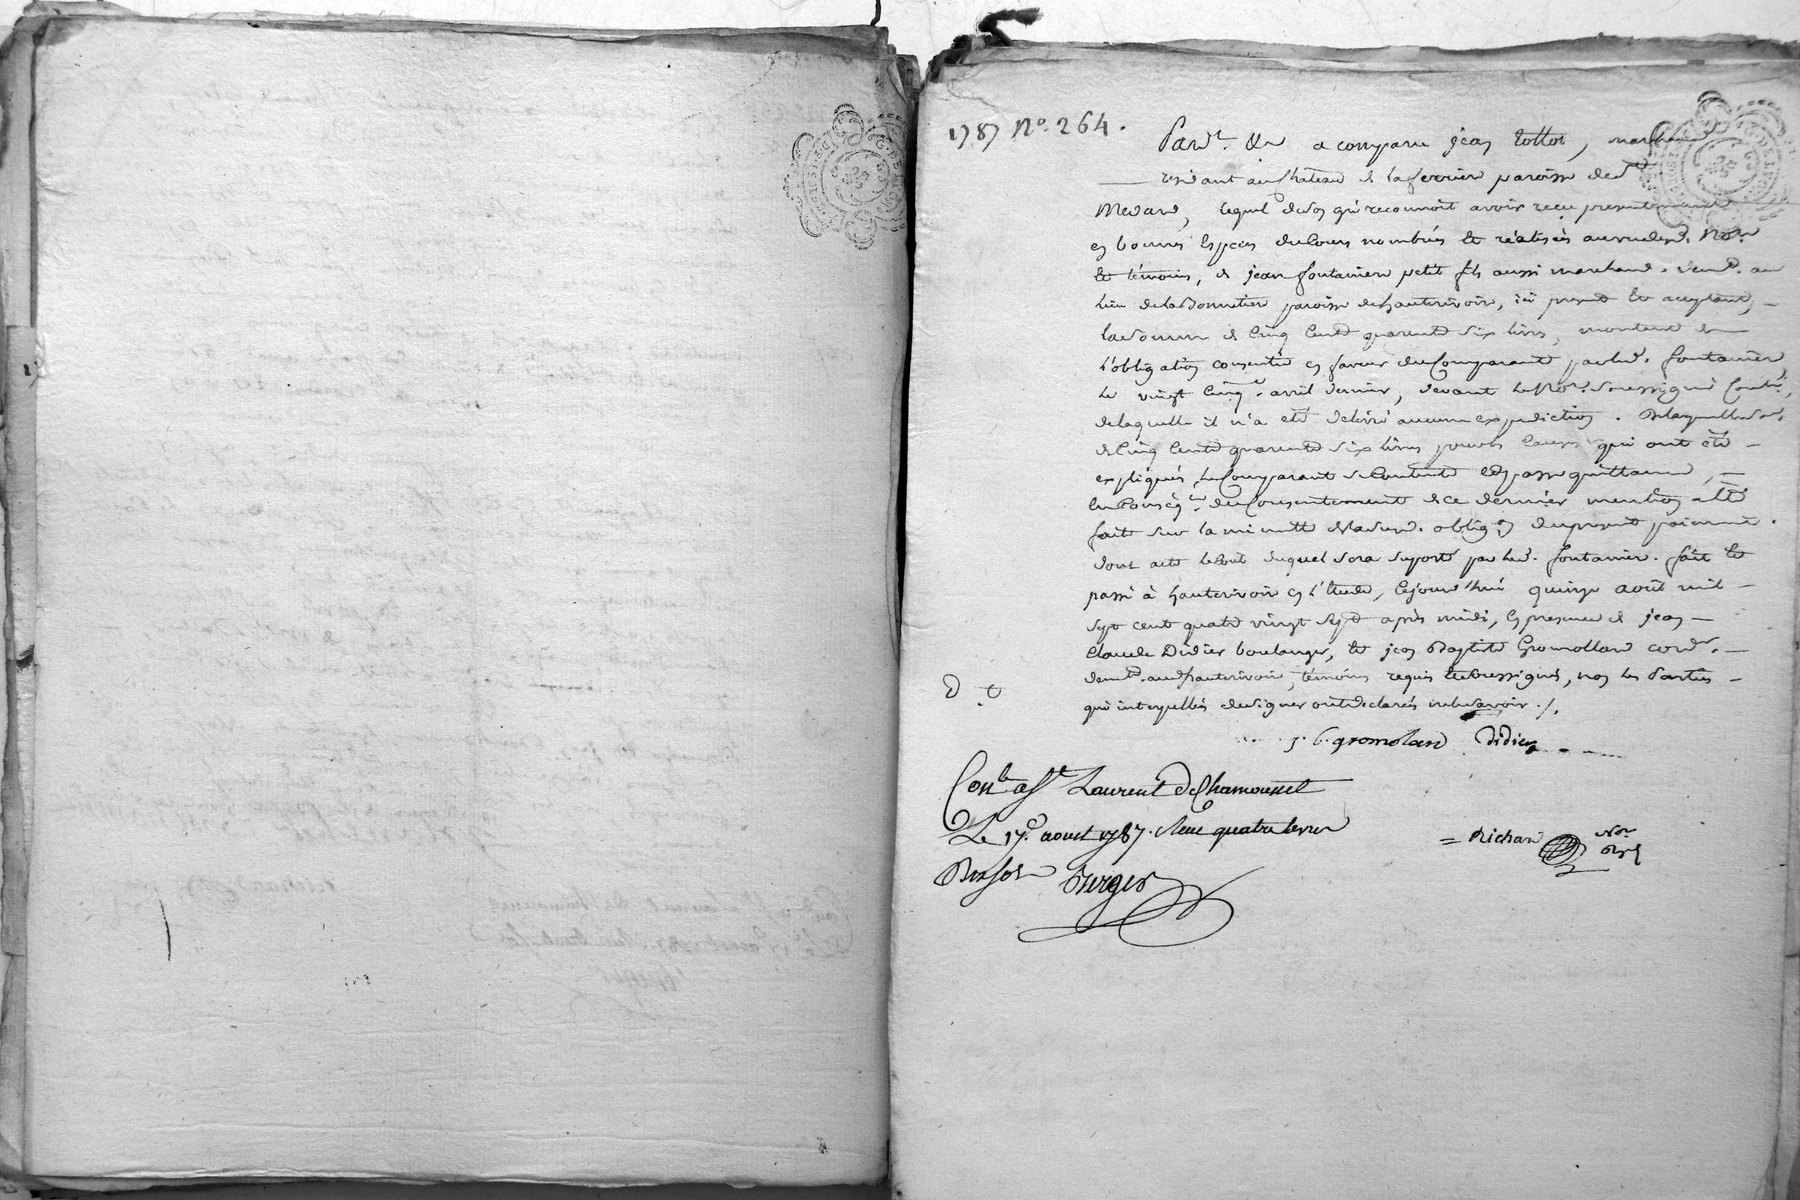 1787 No. 264.
Pard.t &a a comparu jean tottot, marchand
residant au Chateau de la ferriere paroisse de St
Medard, lequel de son gré reconnoit avoir reçu presentement
en bonnes Especes du Cours nombrées et réalisées au vu dud. No.re
et témoins, de jean fontanien petit fils aussi marchand. dem.t au
lieu de la paroisse de hauterivoir, ici present et acceptant,
la somme de Cinq Cents quarente six livres, montant de
l'obligation consentie en faveur du Comparant par led. fontanien
le vingt Cinq avril dernier, devant le No.re soussigné
de laquelle il n'a été delivré aucune expedition. De laquelle
de Cinq Cents quarente six livres pour les causes qui ont été
expliquées le Comparant se Contente et passe quittance,
du Consentement de ce dernier mention a été
faite sur la minutte de lad. oblig.on du present paiement.
dont acte le Cout duquel sera suporté par led. fontanien. fait et
passé à hauterivoir en l'Etude, Cejourd'hui quinze août mil
sept cent quatre vingt sept après midi, En presence de jean
Claude Didier boulanger, et jean Baptiste Gromollard cord.r
dem.ts aud. hauterivoir, témoins requis et soussignés, non les Parties
qui interpellés de signer ont declarés ne le savoir ./.
j. b. gromolard Didier
Con.lé a St Laurent De Chamousset
Le 17.e aoust 1787. Reçu quatre livres
Dix sols Berger
= Richard No.re
Roy.l